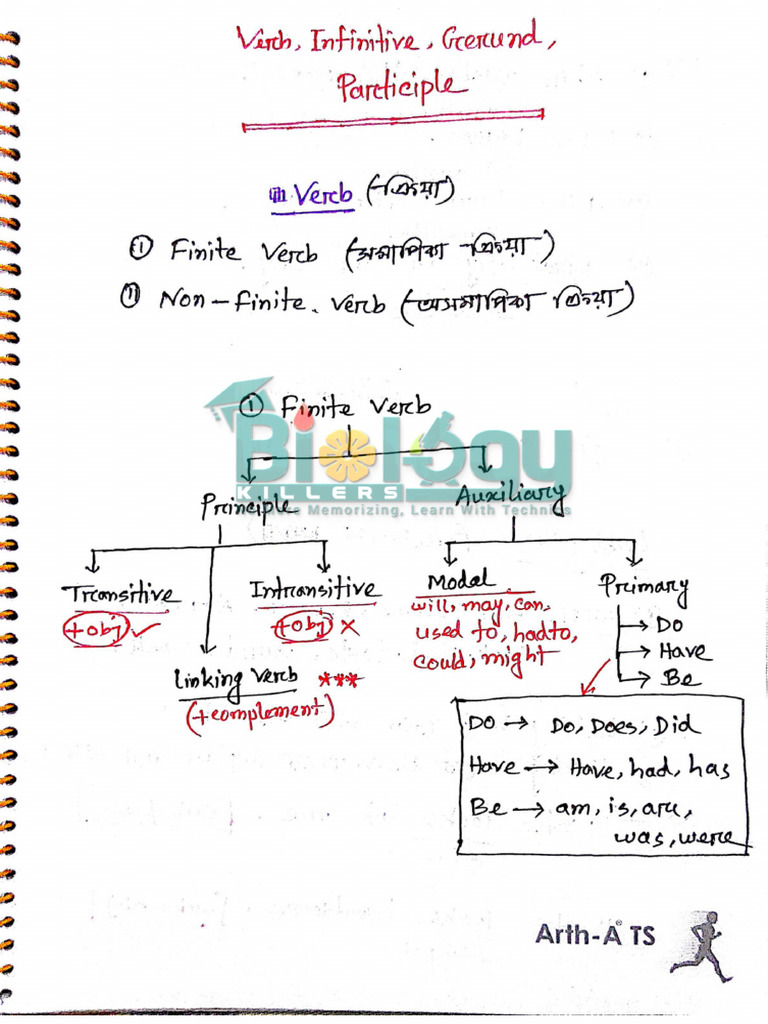 Verb, Infinitive, Gerund,
Participle
Verb (ক্রিয়া)
① Finite Verb (সমাপিকা ক্রিয়া)
⑪ Non-finite verb (অসমাপিকা ক্রিয়া)
① Finite Verb
Biology
KILLERS
More Memorizing, Learn With Techniqs
Principle
Auxiliary
Transitive
+obj ✓
Intransitive
+obj ✗
Linking verb ***
(+complement)
Modal
will, may, can,
used to, had to,
could, might
Primary
→ Do
→ Have
→ Be
Do → Do, Does, Did
Have → Have, had, has
Be → am, is, are,
was, were
Arth-A® TS